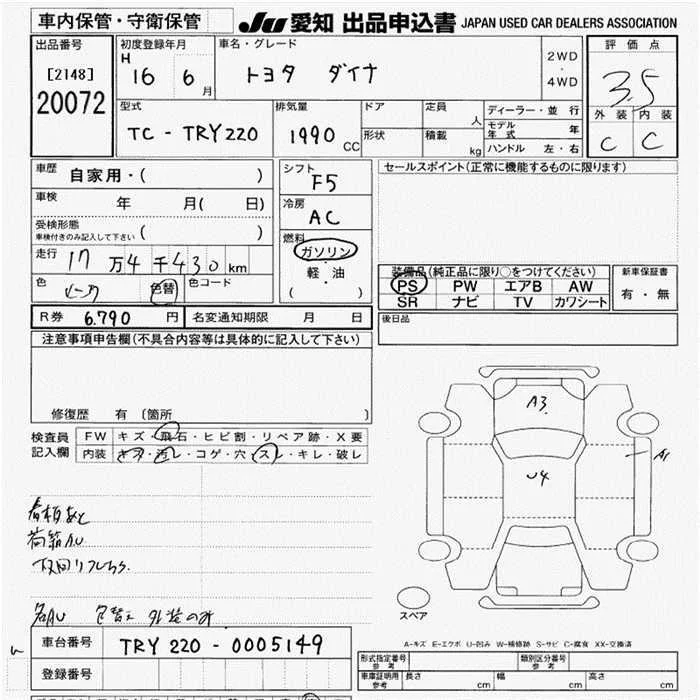 車内保管・守衛保管
JU 愛知 出品申込書 JAPAN USED CAR DEALERS ASSOCIATION
出品番号
[2148]
20072
初度登録年月
H 16 6月
車名・グレード
トヨタ ダイナ
2WD
・
4WD
評価点
3.5
外装 内装
C C
型式
TC - TRY220
排気量
1990 CC
ドア
形状
定員 人
積載 kg
ディーラー・並行
モデル年式 年
ハンドル 左・右
車歴
自家用・( )
車検
年 月( 日)
受検形態
車検付きのみ記入して下さい ( )
走行
17万4千430km
色
色替
色コード
シフト
F5
冷房
AC
燃料
ガソリン
軽・油
( )
セールスポイント(正常に機能するものに限ります)
装備品(純正品に限り○をつけてください)
PS PW エアB AW
SR ナビ TV カワシート
新車保証書
有・無
後日品
R券 6.790円
名変通知期限 月 日
注意事項申告欄(不具合内容等は具体的に記入して下さい)
修復歴 有 〔箇所 〕
検査員
記入欄
FW キズ・飛石・ヒビ割・リペア跡・X要
内装 キズ・汚レ・コゲ・穴・スレ・キレ・破レ
A3
U4
A1
スペア
看板あと
荷箱AU
A-キズ E-エクボ U-凹み W-補修跡 S-サビ C-腐食 XX-交換済
車台番号
TRY 220 - 0005149
登録番号
形式指定番号
参考
類別区分番号
参考
車庫証明用
参考
長さ cm
幅 cm
高さ cm